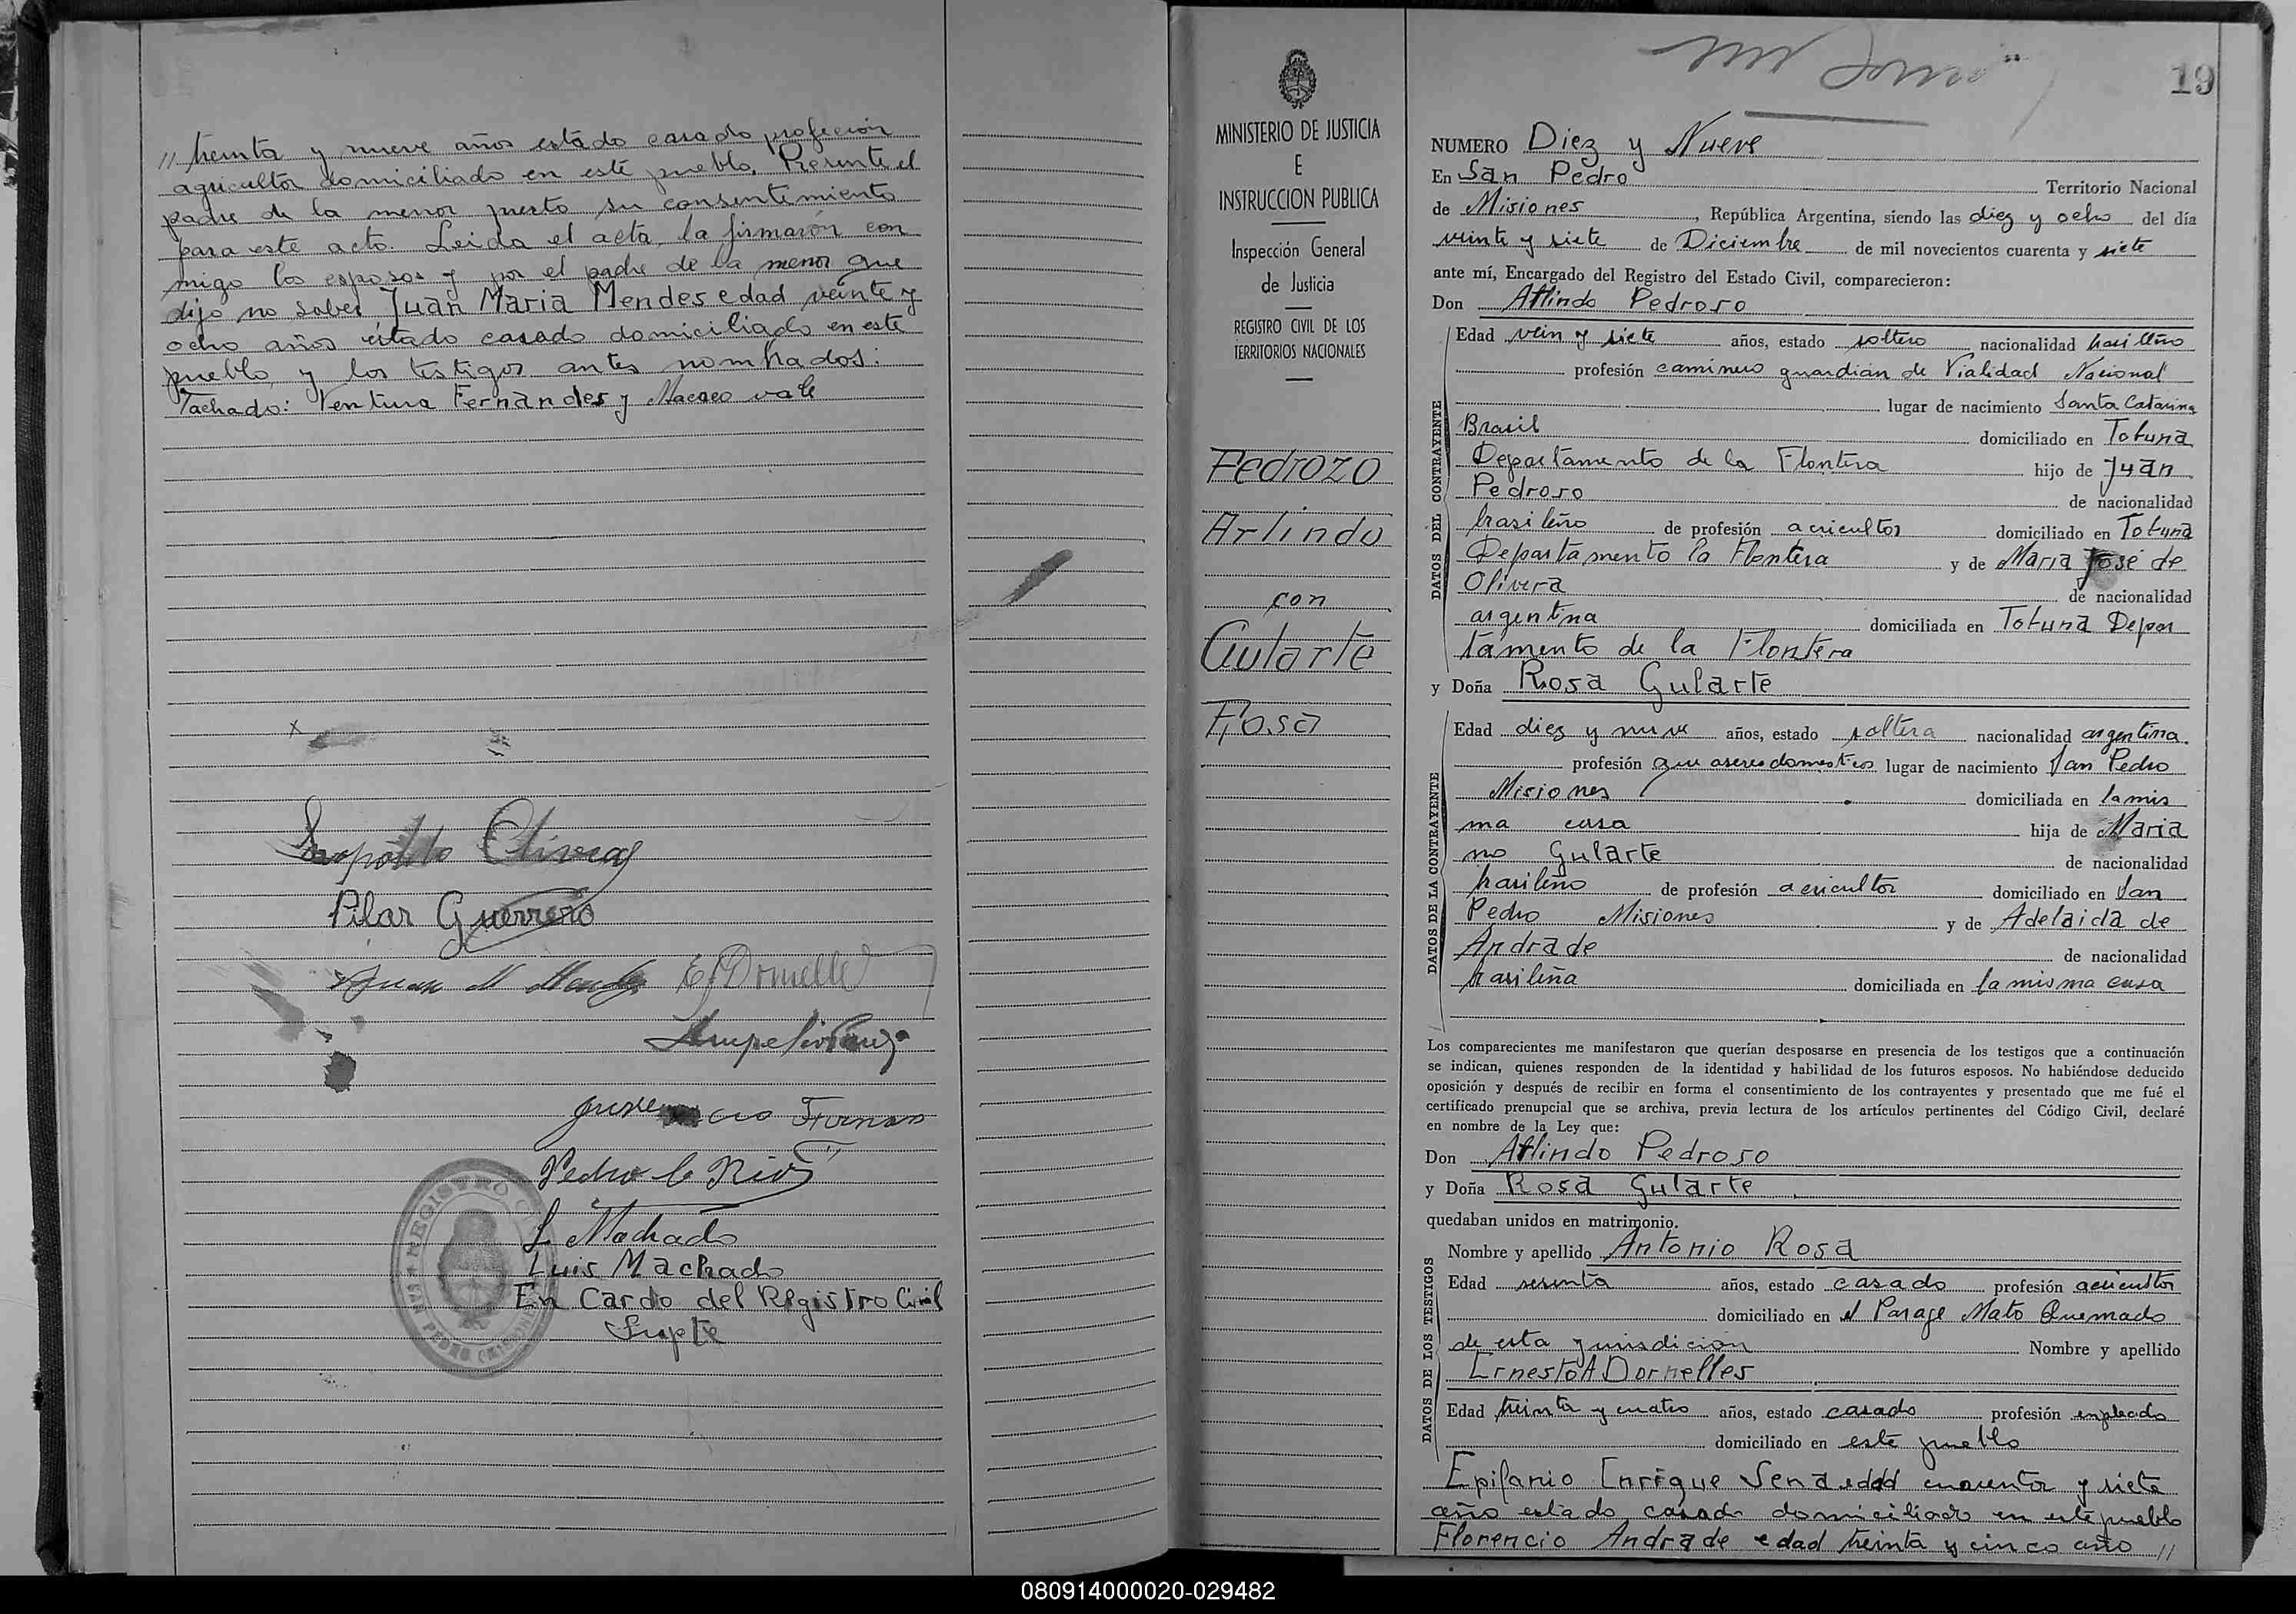 // treinta y nueve años estado casado profeción
agricultor domiciliado en este pueblo. Presente el
padre de la menor presto su consentimiento
para este acto. Leida el acta, la firmaron con
migo los esposos y por el padre de la menor que
dijo no saber Juan Maria Mendes edad veinte y
ocho años estado casado domiciliado en este
pueblo y los testigos antes nombrados:
Tachado: Ventura Fernandes y Macaeo vale
x
Leopoldo Olivera
Pilar Guerrero
Juan M Mendes E A Dornelles
Fernan
Pedro C Rios
L Machado
Luis Machado
En Cardo del Registro Civil
Supte
REGISTRO CIVIL
SAN PEDRO (MISIONES)
MINISTERIO DE JUSTICIA
E
INSTRUCCION PUBLICA
Inspección General
de Justicia
REGISTRO CIVIL DE LOS
TERRITORIOS NACIONALES
Pedrozo
Arlindo
con
Gularte
Rosa
19
NUMERO Diez y Nueve
En San Pedro Territorio Nacional
de Misiones, República Argentina, siendo las diez y ocho del día
veinte y siete de Diciembre de mil novecientos cuarenta y siete
ante mí, Encargado del Registro del Estado Civil, comparecieron:
Don Arlindo Pedroso
DATOS DEL CONTRAYENTE
Edad vein y siete años, estado soltero nacionalidad brasileño
profesión caminero guardian de Vialidad Nacional
lugar de nacimiento Santa Catarina
Brasil domiciliado en Tobuna
Departamento de la Flontera hijo de Juan
Pedroso de nacionalidad
brasileño de profesión acricultor domiciliado en Tobuna
Departamento la Flontera y de Maria José de
Olivera de nacionalidad
argentina domiciliada en Tobuna Depar
tamento de la Flontera
y Doña Rosa Gularte
DATOS DE LA CONTRAYENTE
Edad diez y nueve años, estado soltera nacionalidad argentina
profesión que aseres domesticos lugar de nacimiento San Pedro
Misiones domiciliada en la mis
ma casa hija de Maria
no Gularte de nacionalidad
brasileño de profesión acricultor domiciliado en San
Pedro Misiones y de Adelaida de
Andrade de nacionalidad
brasileña domiciliada en la misma casa
Los comparecientes me manifestaron que querían desposarse en presencia de los testigos que a continuación
se indican, quienes responden de la identidad y habilidad de los futuros esposos. No habiéndose deducido
oposición y después de recibir en forma el consentimiento de los contrayentes y presentado que me fué el
certificado prenupcial que se archiva, previa lectura de los artículos pertinentes del Código Civil, declaré
en nombre de la Ley que:
Don Arlindo Pedroso
y Doña Rosa Gularte
quedaban unidos en matrimonio.
DATOS DE LOS TESTIGOS
Nombre y apellido Antonio Rosa
Edad sesenta años, estado casado profesión acricultor
domiciliado en el Parage Mato Quemado
de esta jurisdicion Nombre y apellido
Ernesto A Dornelles
Edad treinta y cuatro años, estado casado profesión empleado
domiciliado en este pueblo
Epifanio Enrique Sena edad cuarenta y siete
año estado casado domiciliado en este pueblo
Florencio Andrade edad treinta y cinco año //
080914000020-029482